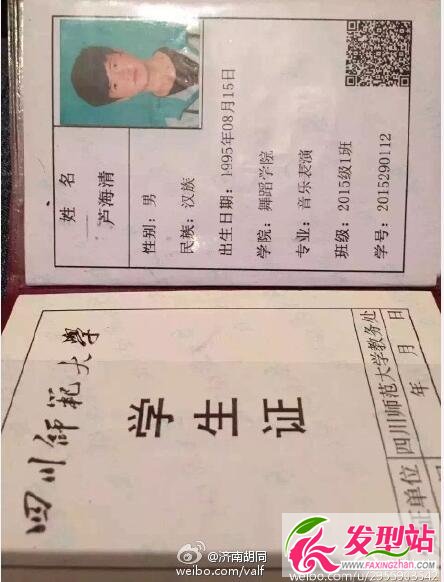 姓 名
芦海清
性别：男
民族：汉族
出生日期：1995年08月15日
学院：舞蹈学院
专业：音乐表演
班级：2015级1班
学号：2015290112
四川师范大學
学生证
四川师范大学教务处
年 月 日
@济南胡同
weibo.com/valf
发型站
WWW.FAXINGZHAN.COM